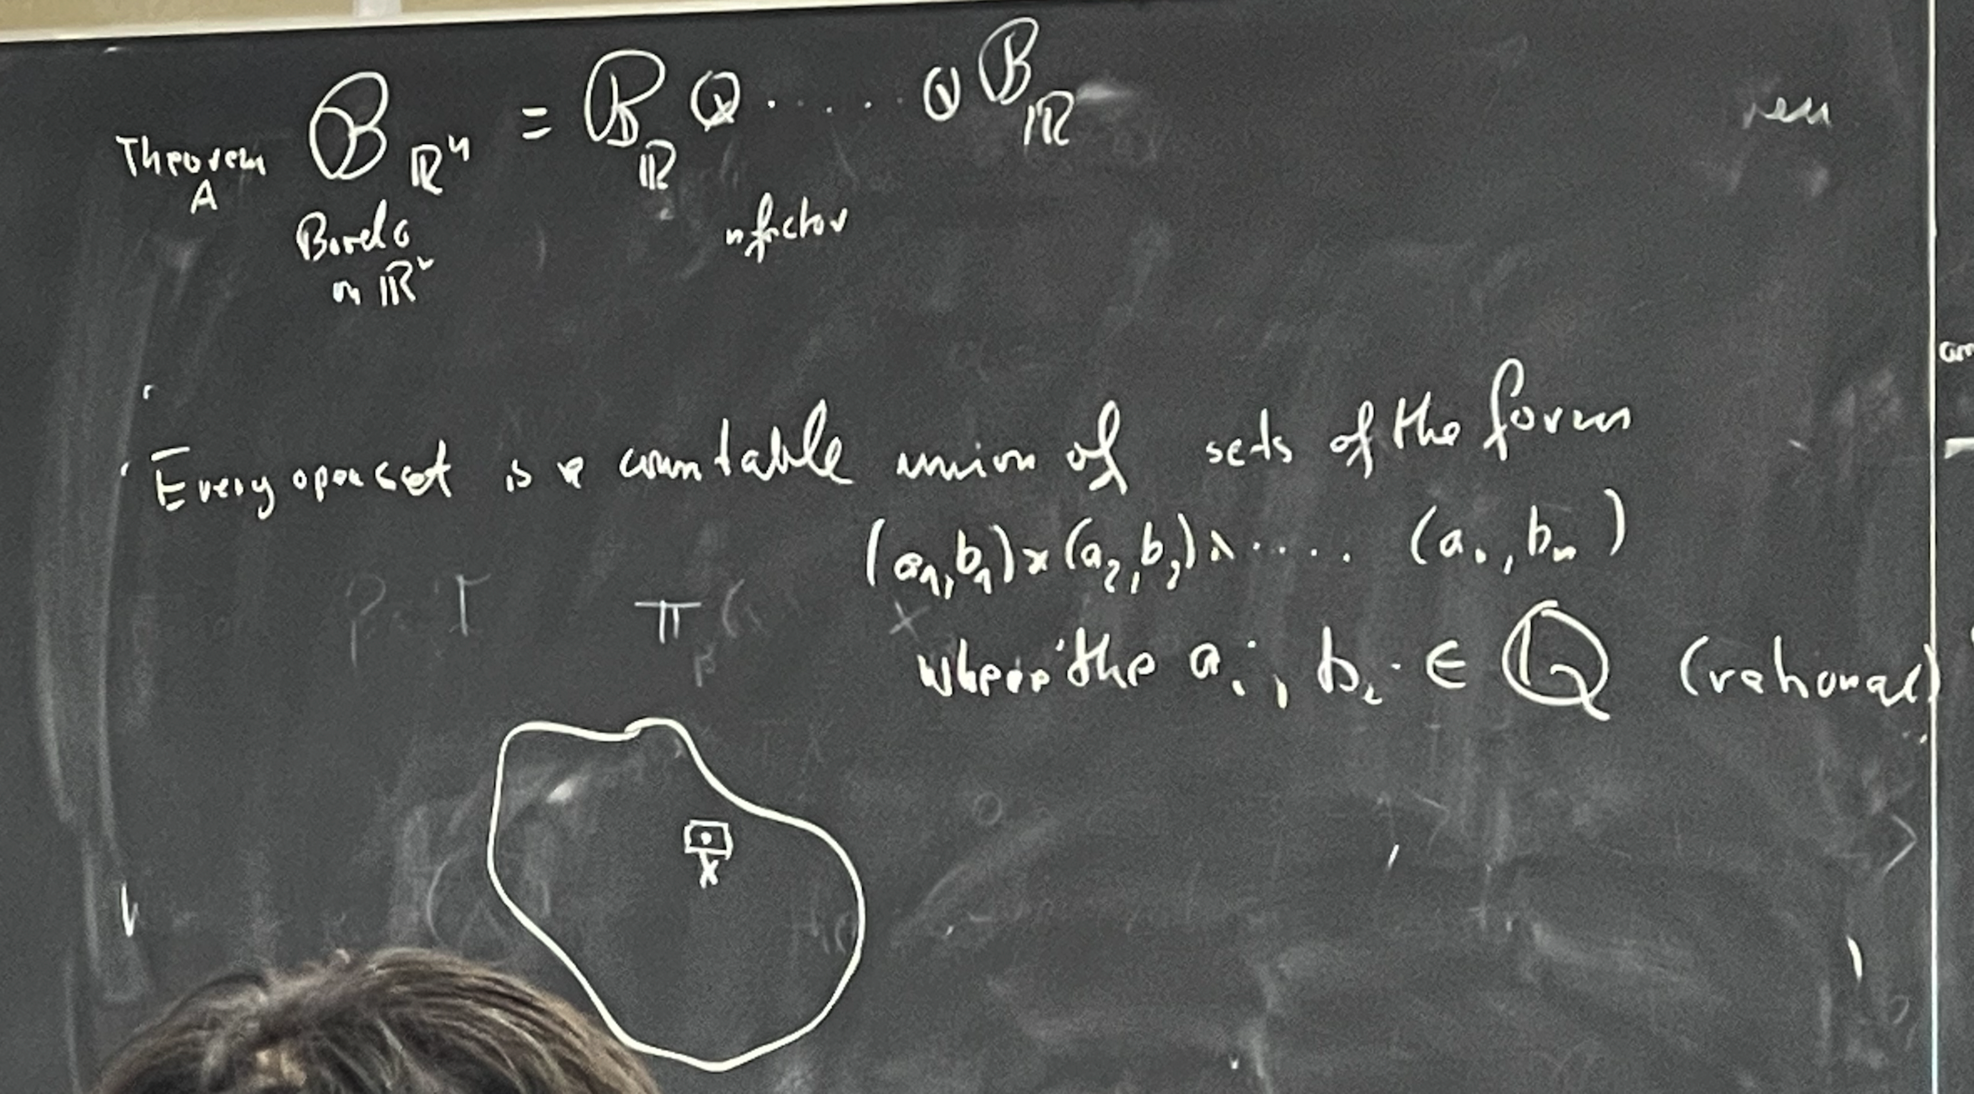 Theorem A 𝓑_ℝⁿ = 𝓑_ℝ ⊗ ..... ⊗ 𝓑_ℝ
Borel σ
on ℝⁿ
n factor
Every open set is a countable union of sets of the form
(a₁,b₁)×(a₂,b₂)×..... (aₙ,bₙ)
where the aᵢ, bᵢ ∈ ℚ (rational)
x